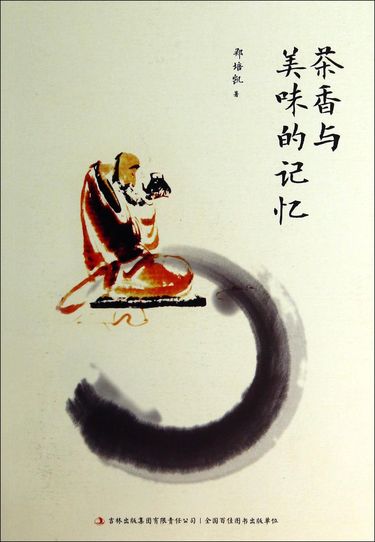 茶香与
美味的记忆
郑培凯 著
吉林出版集团有限责任公司 | 全国百佳图书出版单位